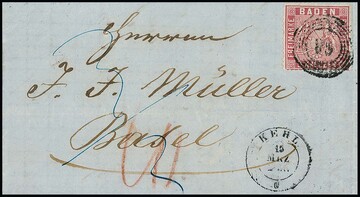 BADEN
FREIMARKE
Herren
J. J. Müller
Basel
KEHL
MRZ